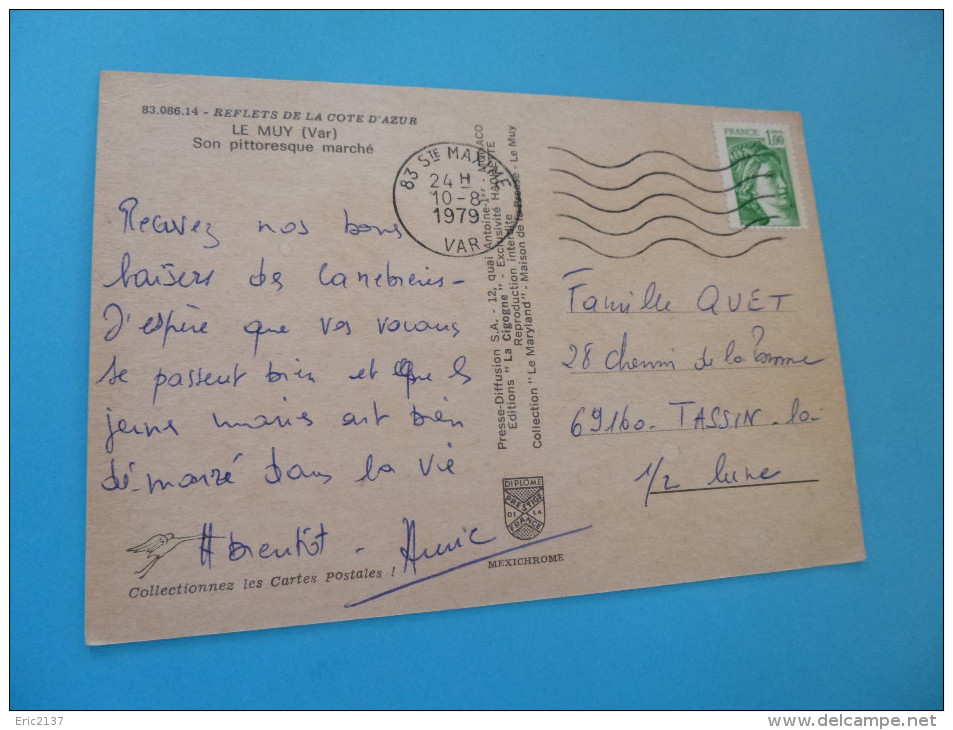 83.086.14 - REFLETS DE LA COTE D'AZUR
LE MUY (Var)
Son pittoresque marché
83 STE MAXIME
24 H
10-8
1979
VAR
FRANCE 1,00
Recevez nos bons
baisers des
J'espère que vos vacances
se passent bien et que les
jeunes mariés ont bien
démarré dans la vie
A bientôt - Annie
Collectionnez les Cartes Postales !
Presse-Diffusion S.A. - 12, quai Antoine-1er - MONACO
Editions "La Cigogne" - Exclusivité HACHETTE
Reproduction interdite
Collection "Le Maryland" - Maison de la Presse - Le Muy
DIPLOME
PRESTIGE
DE LA
FRANCE
MEXICHROME
Famille QUET
28 chemin de la Pomme
69160. TASSIN-la-
1/2 lune
Eric2137
www.delcampe.net